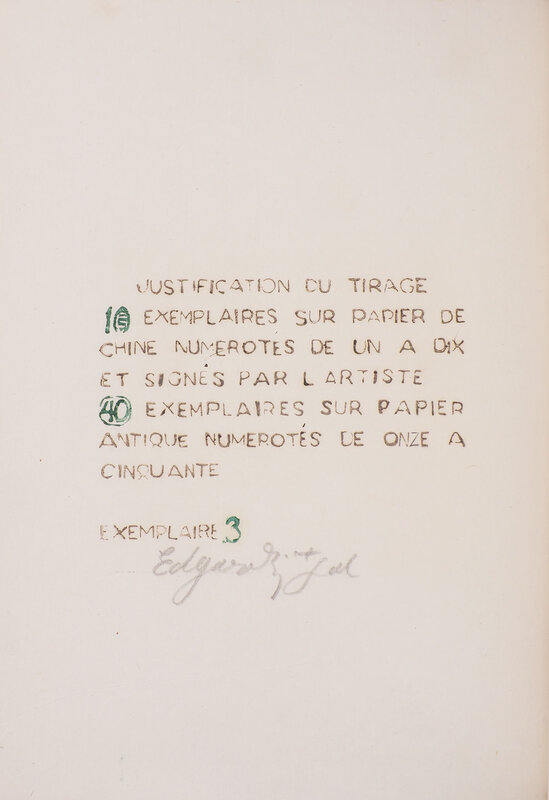 JUSTIFICATION DU TIRAGE
10 EXEMPLAIRES SUR PAPIER DE
CHINE NUMEROTÉS DE UN A DIX
ET SIGNÉS PAR L ARTISTE
40 EXEMPLAIRES SUR PAPIER
ANTIQUE NUMEROTÉS DE ONZE A
CINQUANTE
EXEMPLAIRE 3
Edgar